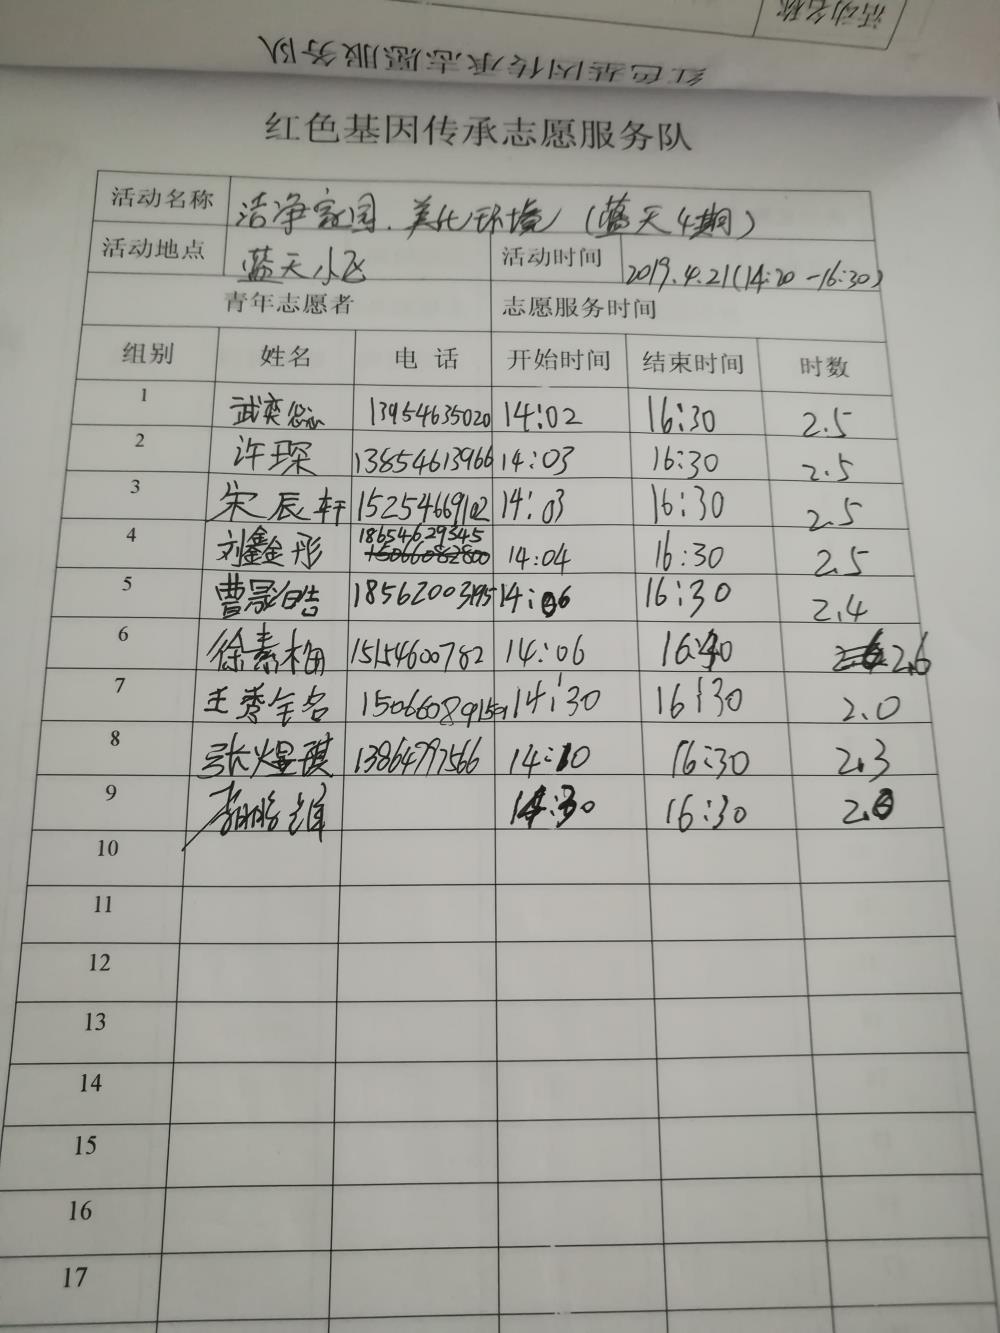 活动名称
红色基因传承志愿服务队
红色基因传承志愿服务队
活动名称 洁净家园.美化环境(蓝天4期)
活动地点 蓝天小区 活动时间 2019.4.21(14:20-16:30)
青年志愿者 志愿服务时间
组别 姓名 电 话 开始时间 结束时间 时数
1 武奕 13954635020 14:02 16:30 2.5
2 许琛 13854613966 14:03 16:30 2.5
3 宋辰轩 15254669102 14:03 16:30 2.5
4 刘鑫彤 18654629345 14:04 16:30 2.5
5 曹 皓 18562003195 14:06 16:30 2.4
6 徐素梅 15154600782 14:06 16:40 2.6
7 王 14:30 16:30 2.0
8 张煜琪 13864797566 14:10 16:30 2.3
9 李 14:30 16:30 2.0
10
11
12
13
14
15
16
17